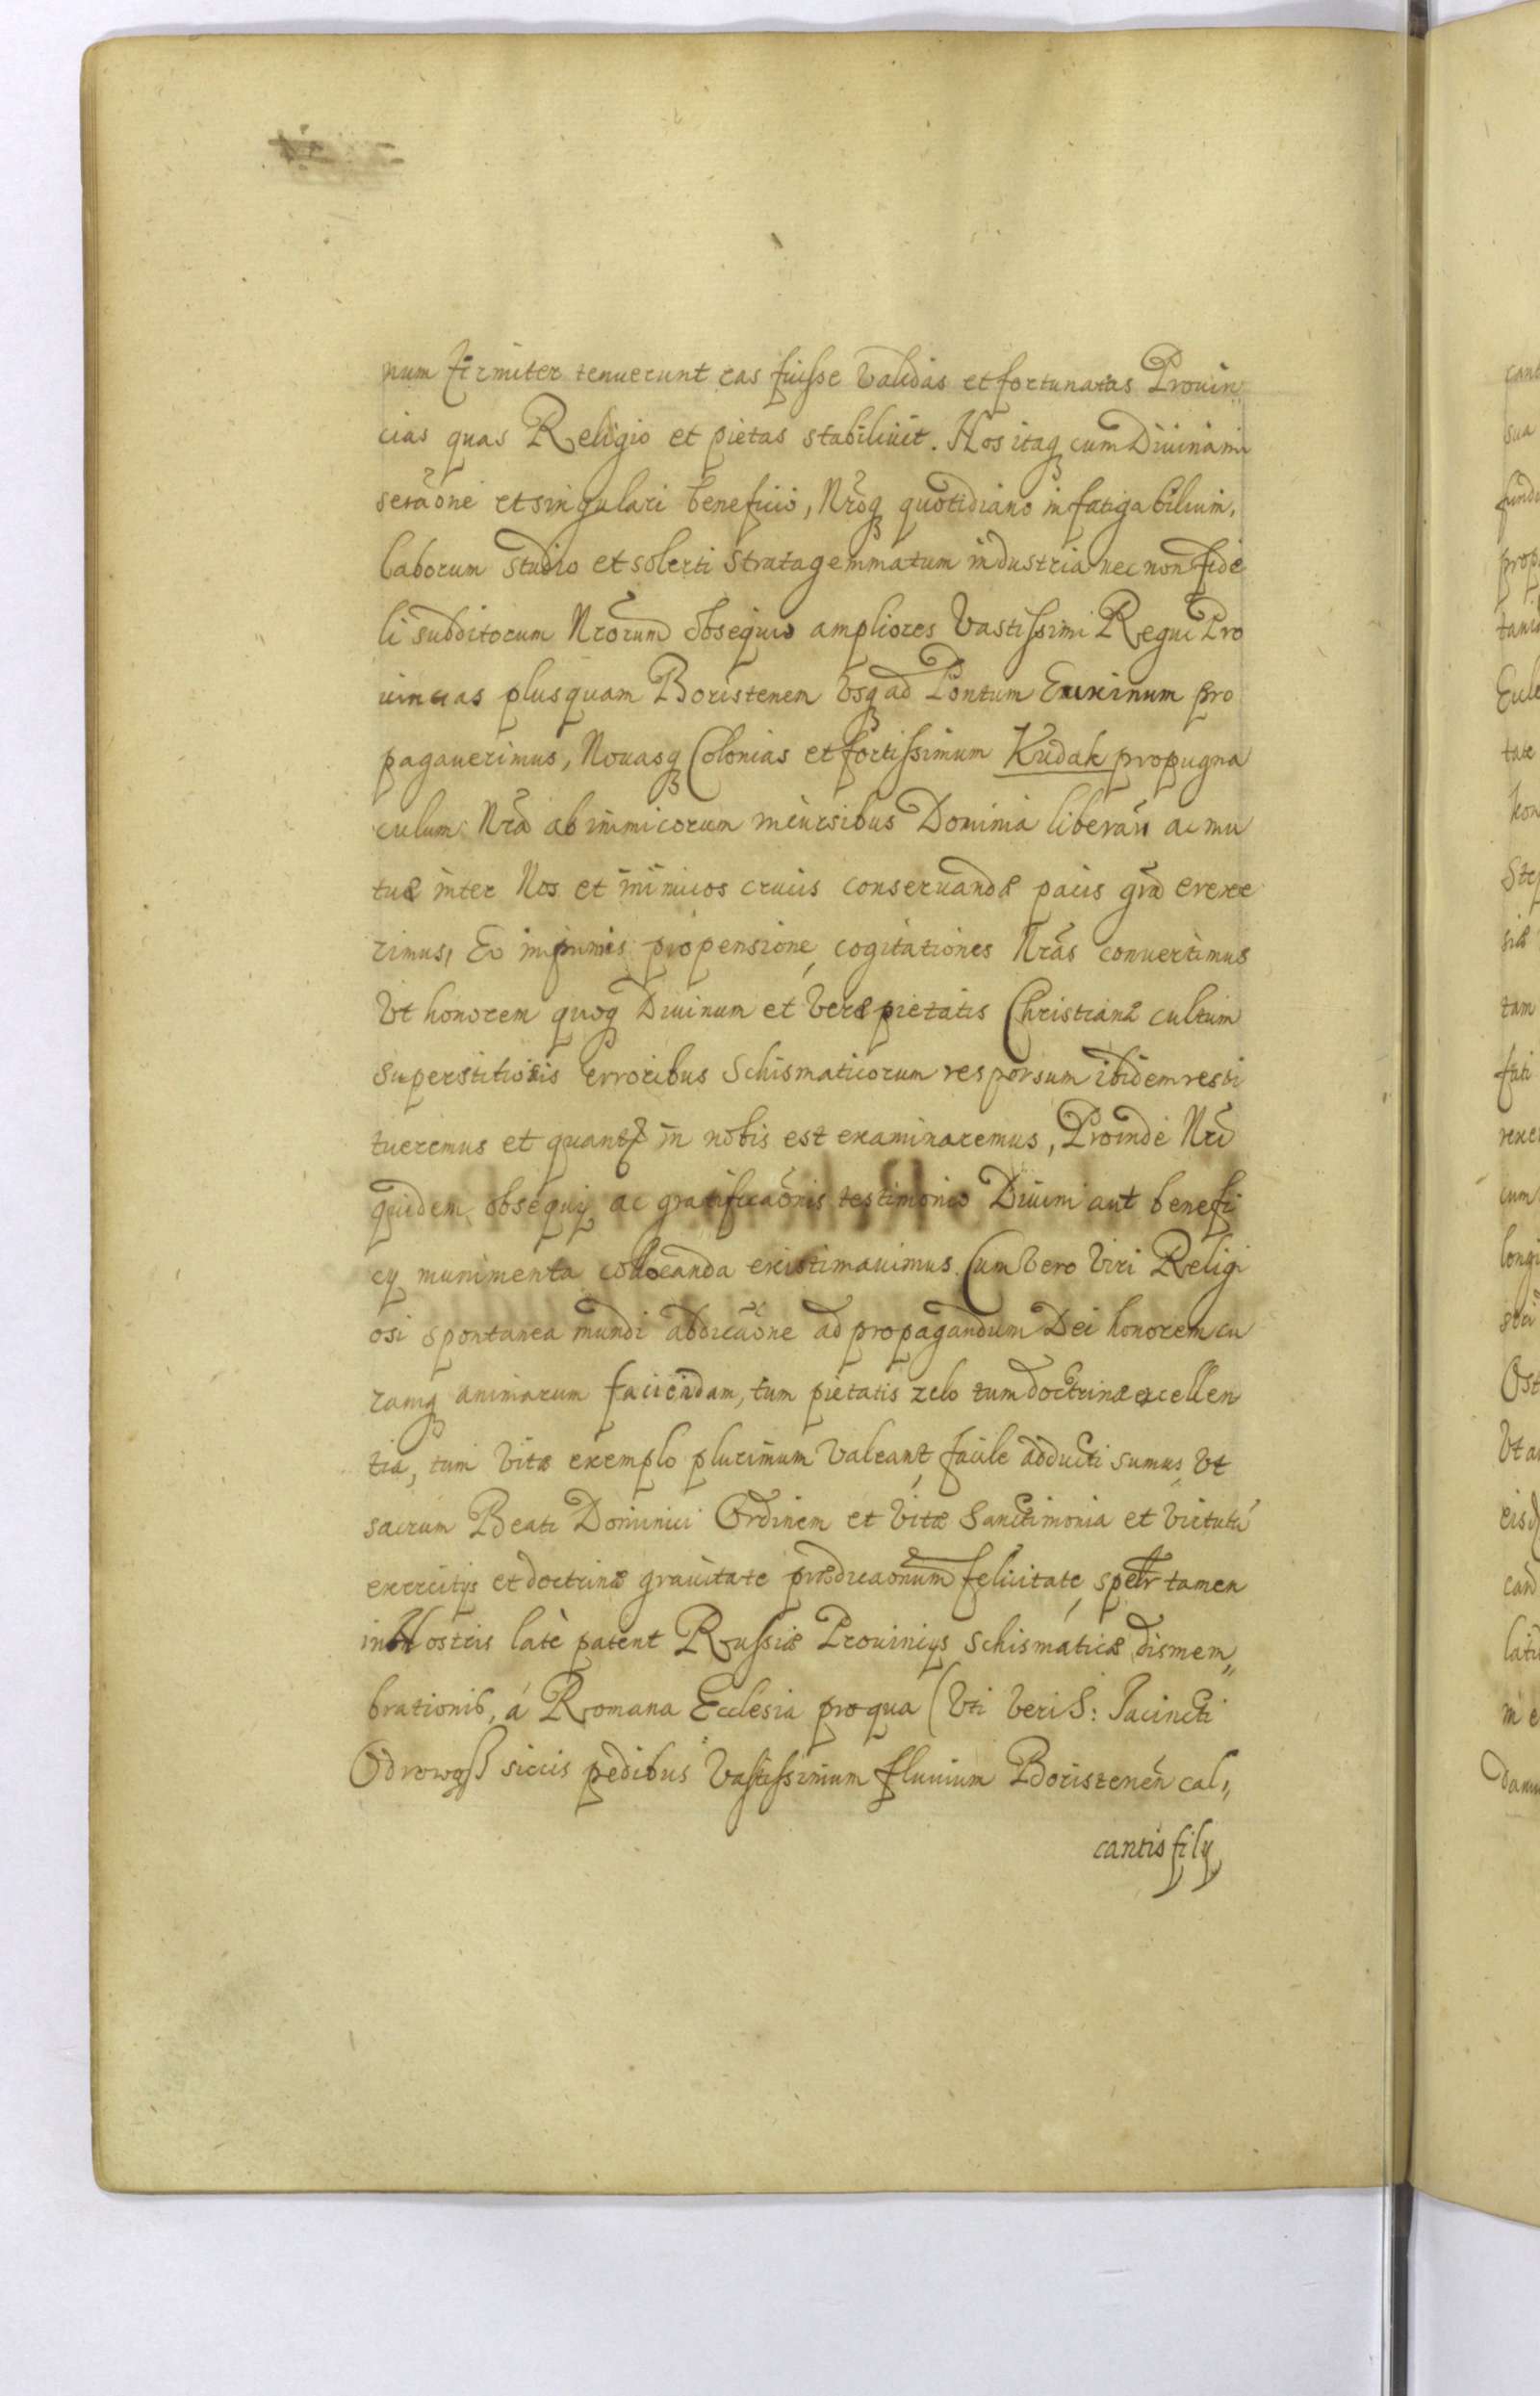 num firmiter tenuerunt eas fuisse validas et fortunatas Prouin„
cias quas Religio et pietas stabiliuit. Nos itaq cum Diuina mi
seraōne et singulari beneficio, Nr̄oq quotidiano infatigabilium,
laborum studio et solerti stratagemmatum industria nec non fide
li subditorum Nr̄orum obsequio ampliores Vastissimi Regni Pro
uincias plusquam Boristenen Vsq ad Pontum Euxinum pro
pagauerimus, Nouasq Colonias et fortissimum Kudak propugna
culum Nr̄a ab inimicorum incursibus Dominia liberān ac mu
tuæ inter Nos et inimicos crucis conseruandæ pacis gr̄a erexe
rimus, Eo inprimis propensione cogitationes Nr̄as conuertimus
Vt honorem quoq Diuinum et Veræ pietatis Christianæ cultum
superstitiosis erroribus Schismaticorum respersum ibidem resti
tueremus et in nobis est examinaremus, Proinde Nr̄i
quidem obsequij ac gratificaōnis testimonio Diuini aut benefi
cij munimenta collocanda existimauimus. Cum Vero Viri Religi
osi spontanea mundi abdicaōne ad propagandum Dei honorem cu
ramq animarum faciendam, tum pietatis zelo tum doctrinæ excellen
tia, tum Vitæ exemplo plurimum Valeant, facile adducti sumus, Vt
sacrum Beati Dominici Ordinem et Vitæ Sanctimonia et Virtutū
exercitijs et doctrinæ grauitate prædicaōnum felicitate, tamen
in Nostris latè patent Russiæ Prouincijs schismaticæ dismem„
brationis, á Romana Ecclesia pro qua (Vti Veri S: Jacincti
Odrowąß siccis pedibus Vastissimum fluuium Boristenēn cal„
cantis filij